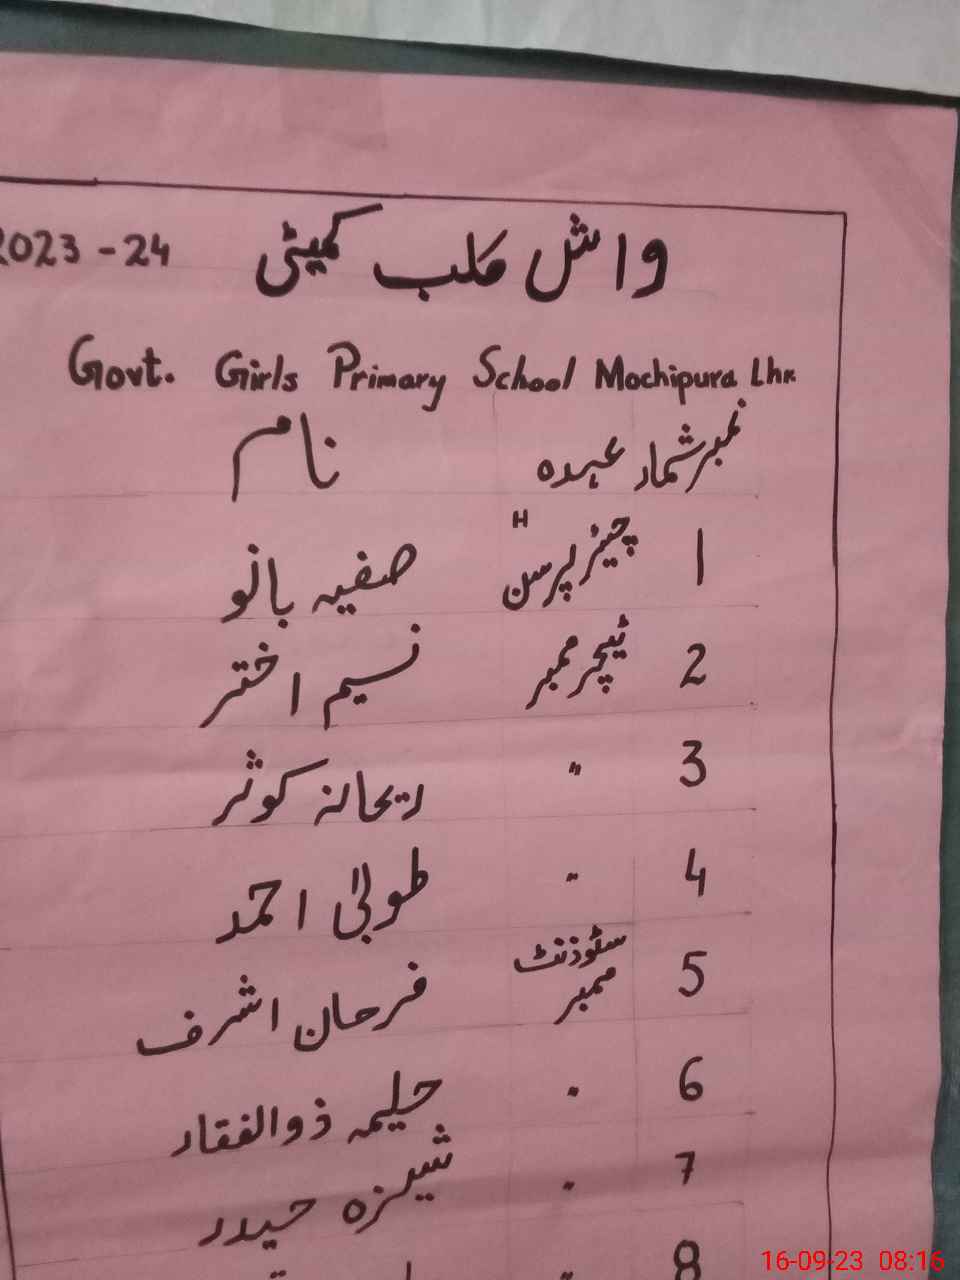 واش کلب کمیٹی 2023-24
Govt. Girls Primary School Mochipura Lhr.
نمبرشمار عہدہ نام
1 چیئرپرسن H صفیہ بانو
2 ٹیچر ممبر نسیم اختر
3 " ریحانہ کوثر
4 " طوبیٰ احمد
5 سٹوڈنٹ ممبر فرحان اشرف
6 " حلیمہ ذوالفقار
7 " شیزہ حیدر
8 "
16-09-23 08:16